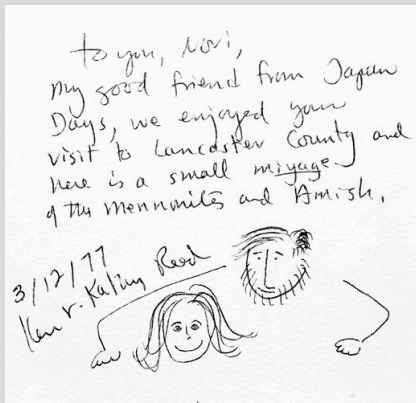 to you, Nori,
my good friend from Japan
Days, we enjoyed your
visit to Lancaster County and
here is a small miyage
of the mennonites and Amish.
3/12/77
Ken r. Kathy Reed